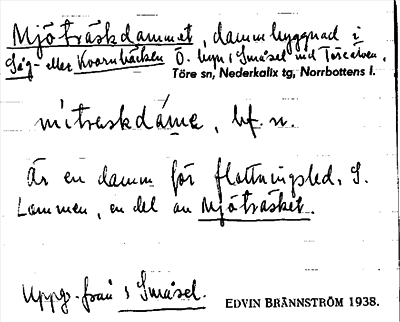 Mjöträskdammet, dammbyggnad i
Såg- eller Kvarnbäcken Ö. byn i Småsel vid Töreälven,
Töre sn, Nederkalix tg, Norrbottens l.
mitraskdáme, bf. n.
Är en damm för flottningsled. S.
Lommen, en del av Mjöträsket.
Uppg. från s Småsel.
EDVIN BRÄNNSTRÖM 1938.